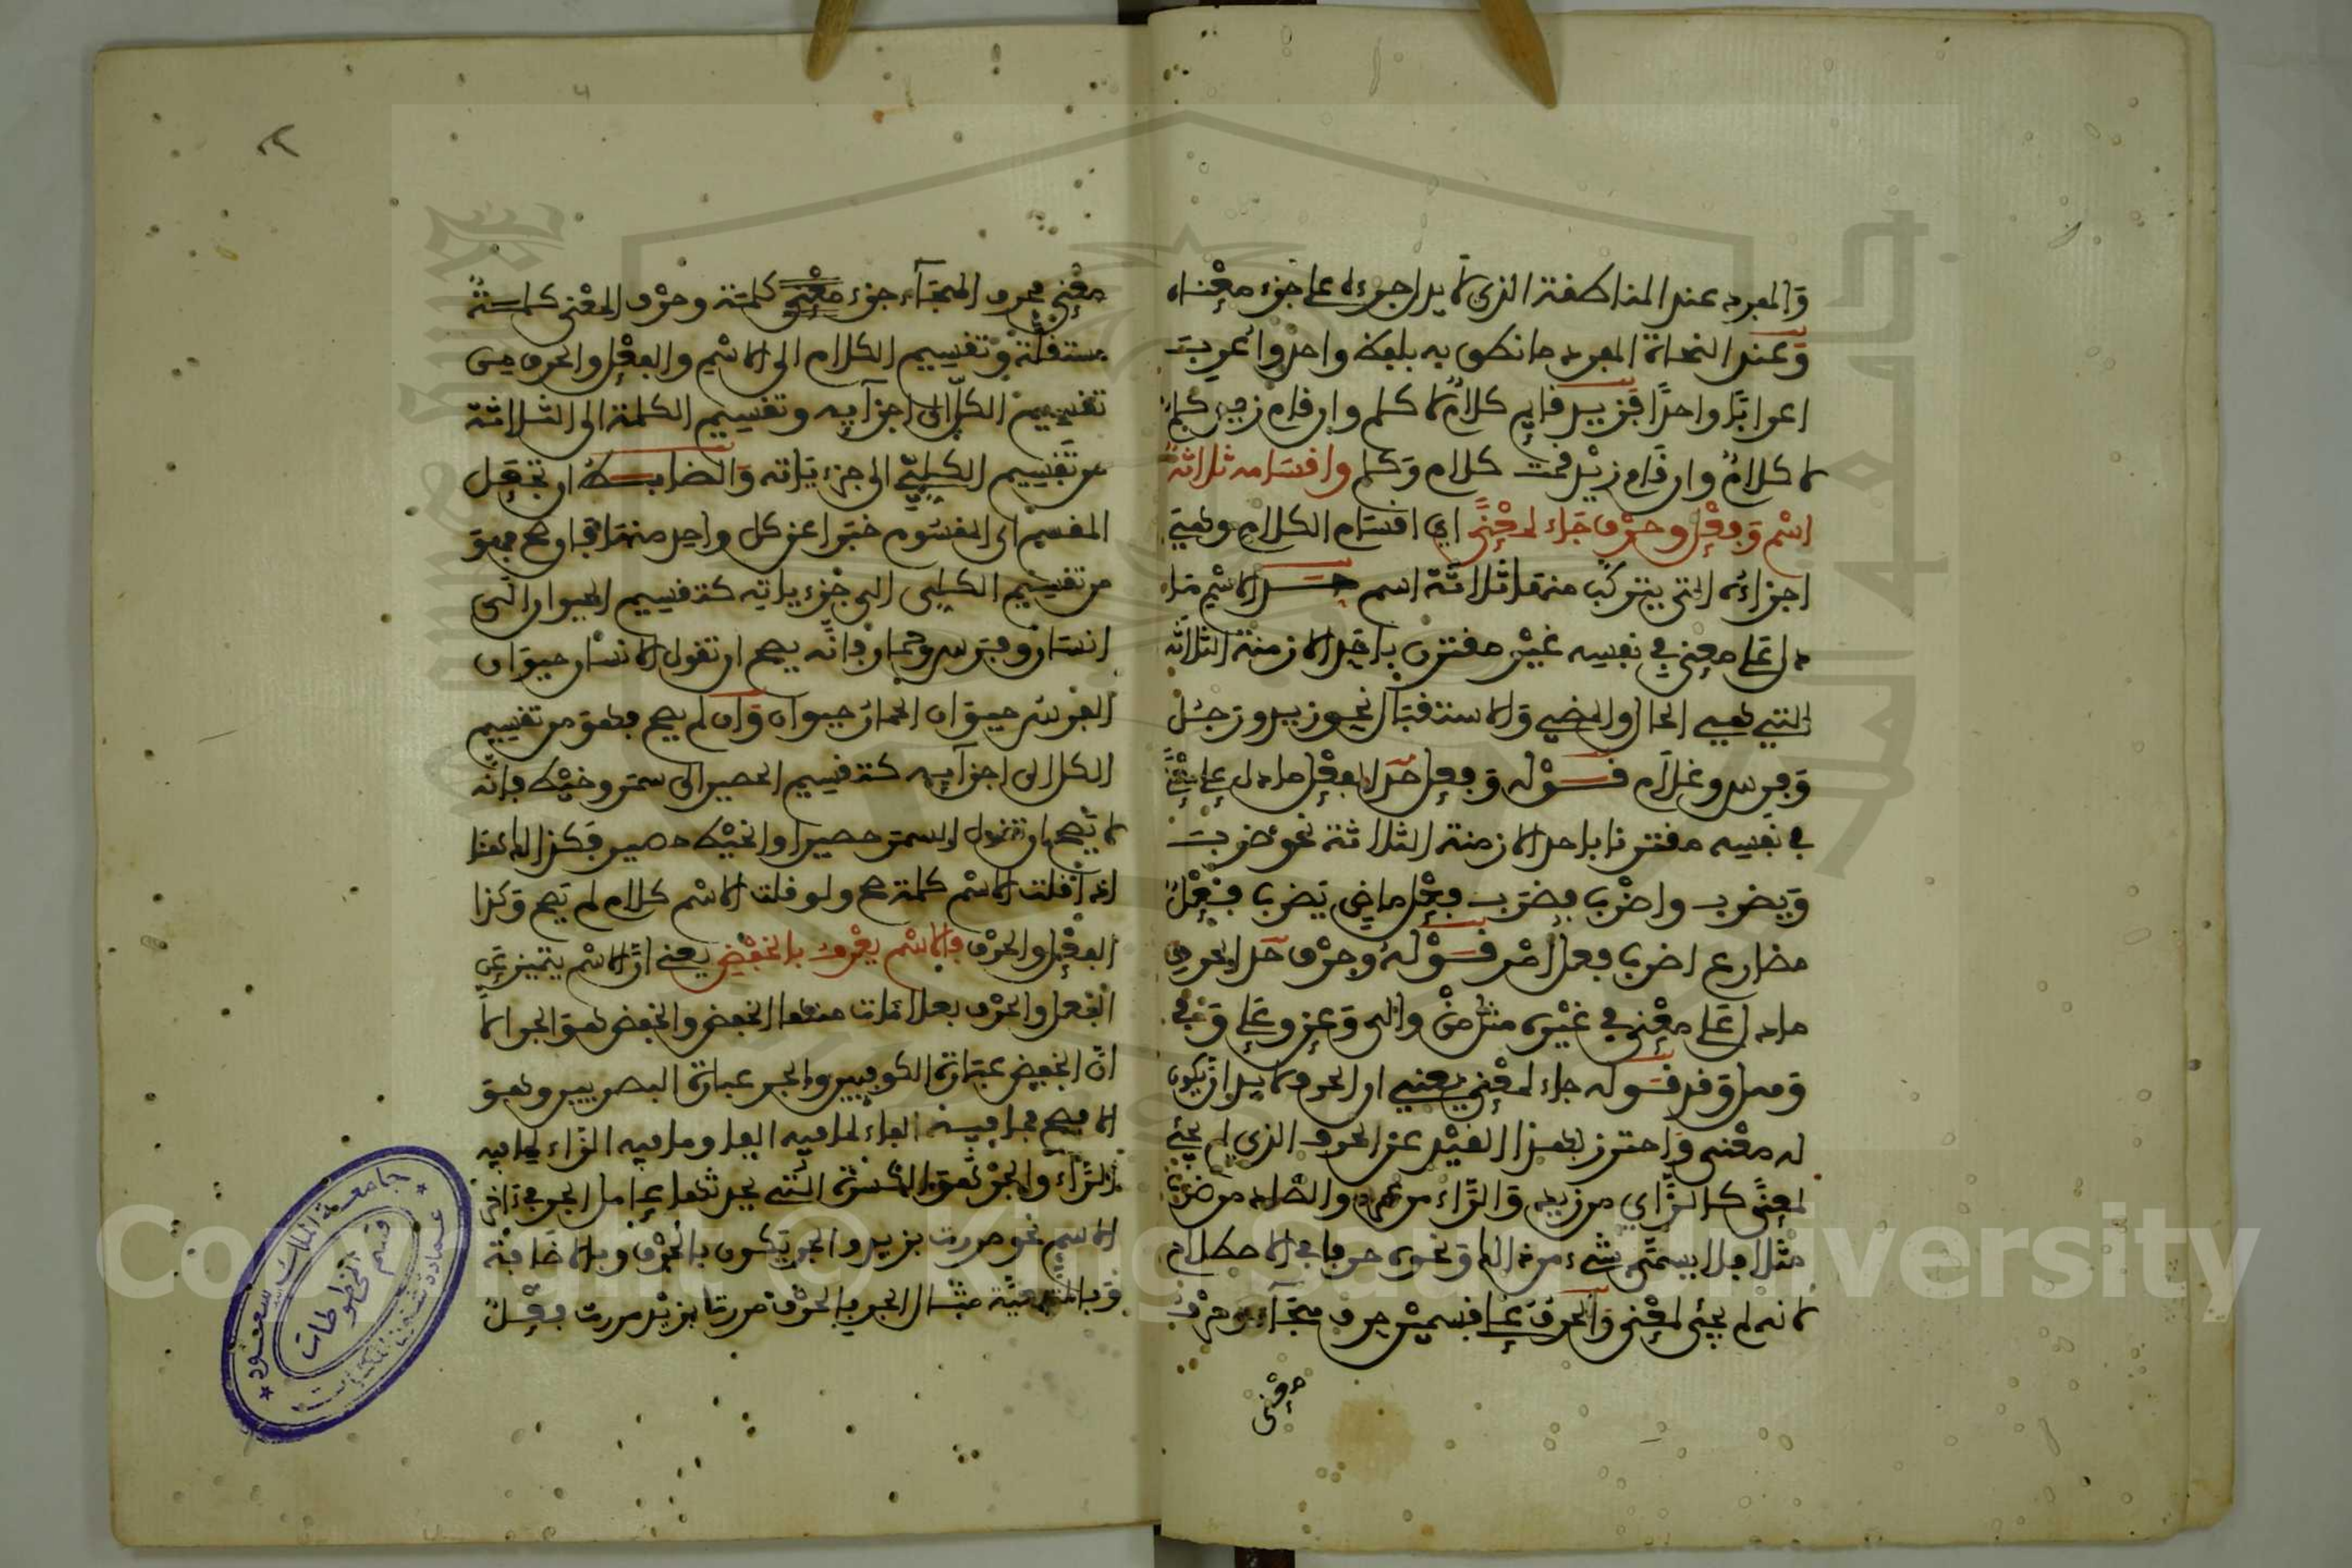 والمفرد عند المناطقة الذي لا يدل جزءه على جزء معناه
وعند النحاة المفرد ما نطق به بلفظ واحد وأعرب
اعرابا واحدا فزيد قايم كلام لا كلم وإن قام زيد كلم
لا كلام وان قام زيد قمت كلام وكلم واقسامه ثلاثة
اسم وفعل وحرف جاء لمعنى اي اقسام الكلام وهي
اجزاؤه التي يتركب منها ثلاثة اسم حد الاسم ما
دل على معنى في نفسه غير مقترن باحد الازمنة الثلاثة
التي هي الحال والمضي والاستقبال نحو زيد ورجل
وفرس وغلام قوله وفعل حد الفعل ما دل على معنى
في نفسه مقترنا باحد الازمنة الثلاثة نحو ضرب
ويضرب واضرب فضرب فعل ماضي يضرب فعل
مضارع اضرب فعل امر قوله وحرف حد الحرف
ما دل على معنى في غيره مثل من والى وعن وعلى وفي
قوله جاء لمعنى يعني ان الحرف لا بد ان يكون
له معنى واحترز بهذا القيد عن الحرف الذي لم يجئ
لمعنى كالزاي من زيد والراء من والضاد من ضرب
مثلا فلا يسمى شيء من ذالك ونحوه حرفا في الاصطلاح
لانه لم يجئ لمعنى والحرف على قسمين حرف هجاء وحرف
معنى
معنى فحرف الهجاء جزء كلمة وحرف المعنى كلمة
مستقلة وتقسيم الكلام الى الاسم والفعل والحرف من
تقسيم الكل الى اجزآيه وتقسيم الكلمة الى الثلاثة
من تقسيم الكلي الى جزءياته والضابط ان تجعل
المقسم اي المقسوم خبرا عن كل واحد منها فان صح فهو
من تقسيم الكلي الى جزءياته كتقسيم الحيوان الى
انسان وفرس وحمار فانه يصح ان تقول الانسان حيوان
الفرس حيوان الحمار حيوان وان لم يصح فهو من تقسيم
الكل الى اجزآيه كتقسيم الحصير الى سمر وخيط فانه
لا يصح ان تقول السمر حصير او الخيط حصير فكذالك هنا
اذا قلت الاسم كلمة صح ولو قلت الاسم كلام لم يصح وكذا
الفعل والحرف فالاسم يعرف بالخفض يعني ان الاسم يتميز عن
الفعل والحرف بعلامات منها الخفض والخفض هو الجر الا
ان الخفض عبارة الكوفيين والجر عبارة البصريين وهو
الراء والجر هو الكسرة التي يحدثها عامل الجر في آخر
الاسم نحو مررت بزيد والجر يكون بالحرف وبالاضافة
وبالتبعية مثال الجر بالحرف مررت بزيد مررت فعل
جامعة الملك سعود
عمادة شئون المكتبات
قسم المخطوطات
Copyright © King Saud University